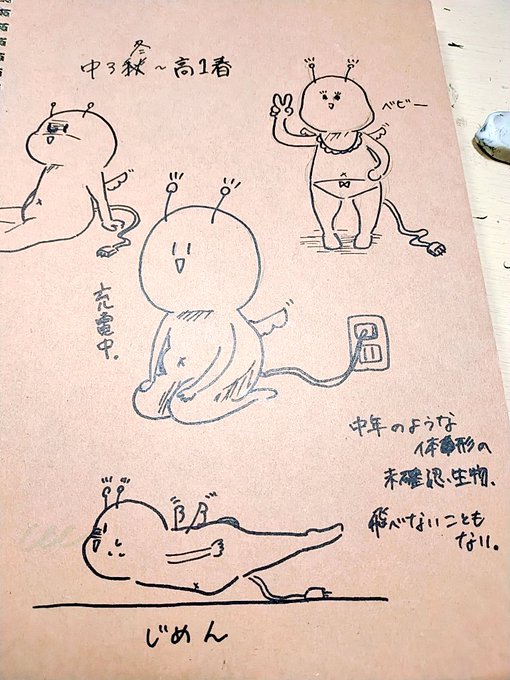 冬
中3秋～高1春
ベビー
充電中。
中年のような
体形の
未確認、生物、
飛べないことも
ない。
じめん